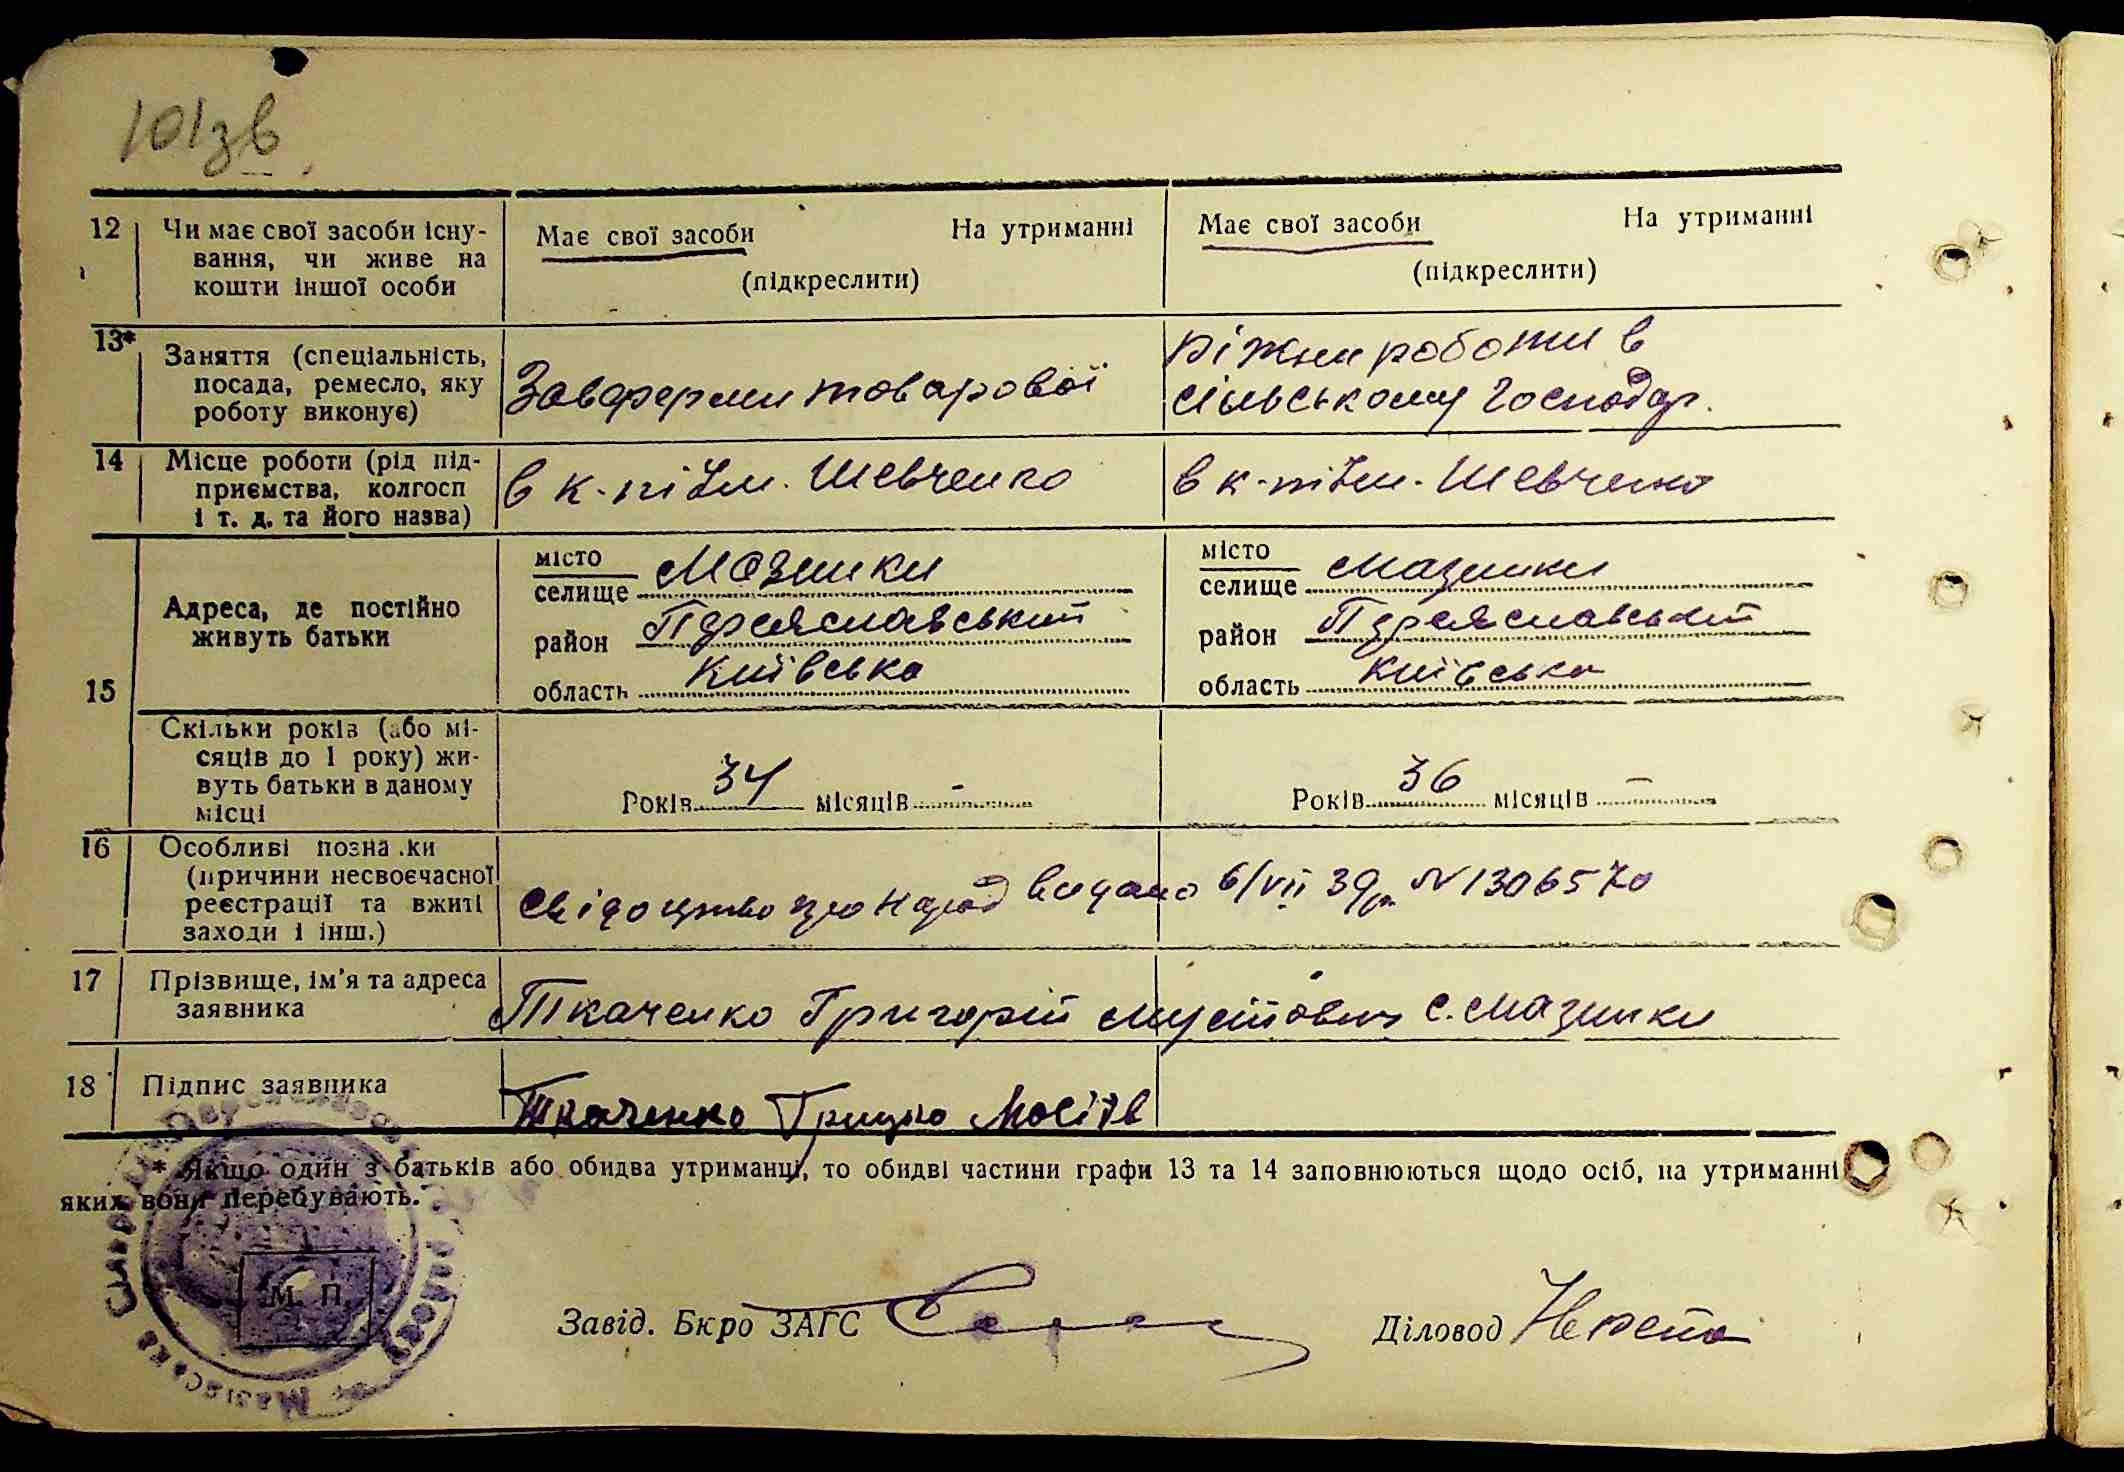 101зв
12 Чи має свої засоби існу- Має свої засоби На утриманні Має свої засоби На утриманні
вання, чи живе на (підкреслити) (підкреслити)
кошти іншої особи
13* Заняття (спеціальність, Завферми товарової ріжни роботи в
посада, ремесло, яку сільському господар.
роботу виконує)
14 Місце роботи (рід під- в к-пі ім. Шевченко в к-пі ім. Шевченко
приємства, колгосп
і т. д. та його назва)
15 Адреса, де постійно
живуть батьки
місто
селище Мазинки
район Переяславський
область Київська
місто
селище Мазинки
район Переяславський
область Київська
Скільки років (або мі-
сяців до 1 року) жи-
вуть батьки в даному
місці
Років 34 місяців - Років 36 місяців -
16 Особливі позна.ки
(причини несвоєчасної
реєстрації та вжиті
заходи і інш.)
Свідоцтво про народ видано 6/VII 39р. N 1306570
17 Прізвище, ім'я та адреса
заявника
Ткаченко Григорій с. Мазинки
18 Підпис заявника Ткаченко Грицко
* Якщо один з батьків або обидва утриманці, то обидві частини графи 13 та 14 заповнюються щодо осіб, на утриманні
яких вони перебувають.
М. П.
Завід. Бкро ЗАГС Діловод